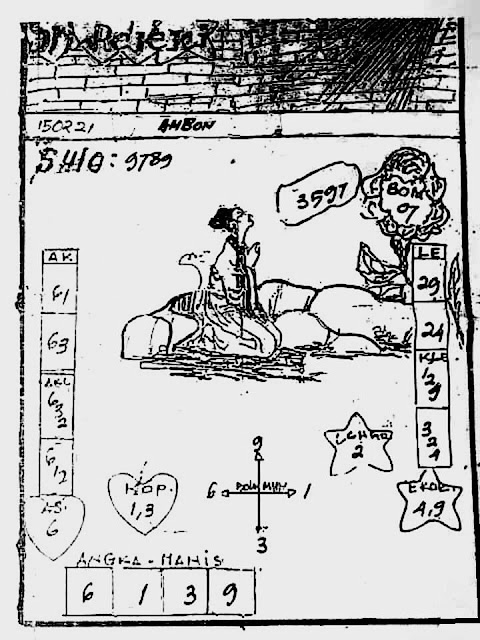 150221
AMBON
SHIO: 9789
3597
BOM
07
AK
61
63
6
3
2
6
1/2
AS.
6
LE
29
24
KLE
1
2
9
3
2
4
KOP.
1,3
9
6
1
3
2
EKOR.
4,9
ANGKA-MANIS
6 1 3 9